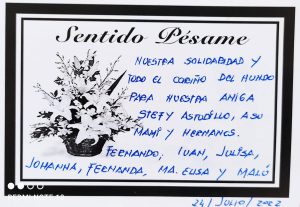 Sentido Pésame
NUESTRA SOLIDARIDAD Y
TODO EL CARIÑO DEL MUNDO
PARA NUESTRA AMIGA
STEFY ASTUDILLO, A SU
MAMI Y HERMANOS.
FERNANDO, IVAN, JULISA,
JOHANNA, FERNANDA, MA. ELISA Y MALÚ
24/JULIO/2022
REDMI NOTE